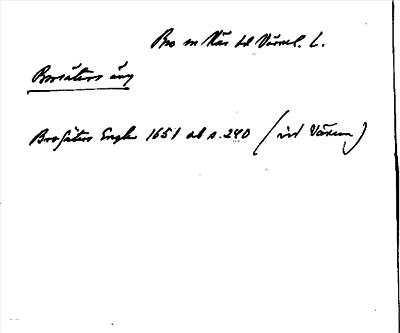 Bro sn Näs hd Värml. l.
Brosäters äng
Brosäters Engh 1651 ab s. 240 (vid Vänern)